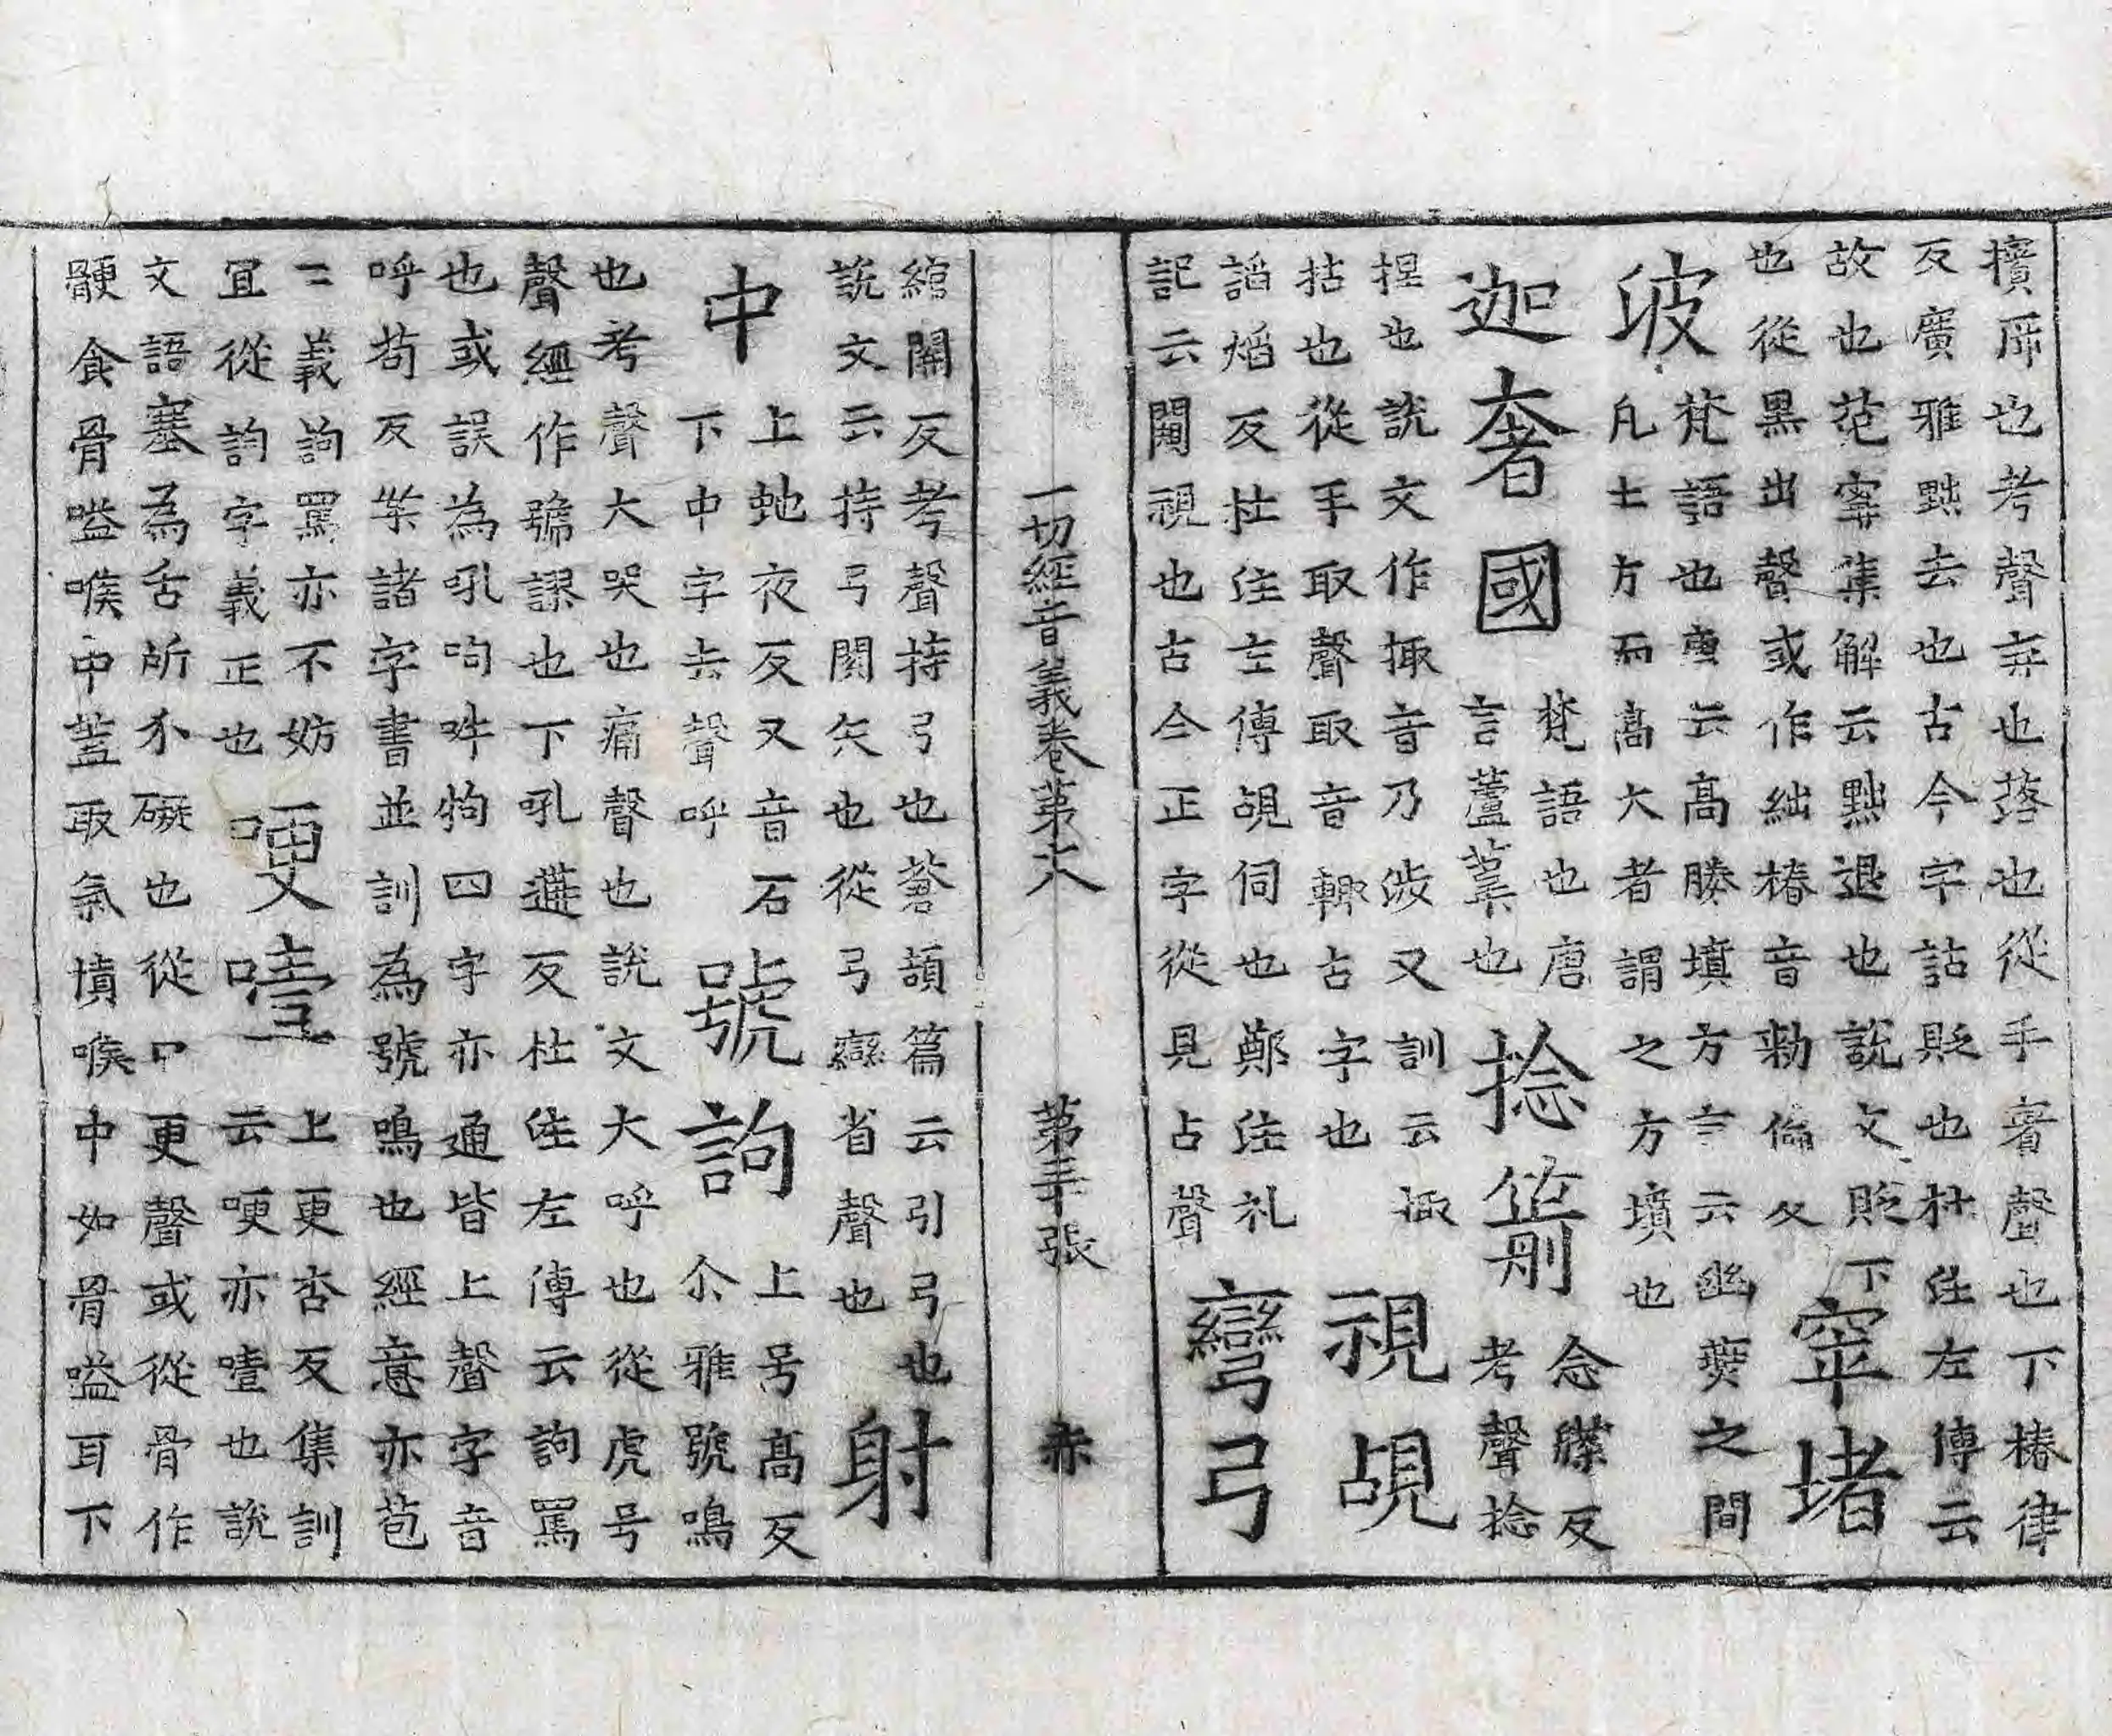 擯斥也考聲弃也落也從手賓聲也下椿律
反廣雅黜去也古今字詁貶也杜注左傳云
故也范甯集解云黜退也說文貶下
也從黑出聲或作絀椿音勑倫反
窣堵
波
梵語也唐云高勝墳方言云幽冀之間
凡土方而高大者謂之方墳也
迦奢國
梵語也唐
言蘆葦也
捻箭
念牒反
考聲捻
捏也說文作掫音乃涉又訓云掫
拈也從手取聲取音輒古字也
視覘
謟焰反杜注左傳覘伺也鄭注礼
記云闚視也古今正字從見占聲
彎弓
綰關反考聲持弓也蒼頡篇云引弓也
說文云持弓關矢也從弓䜌省聲也
射
中
上虵夜反又音石
下中字去聲呼
號訽
上号高反
尒雅號鳴
也考聲大哭也痛聲也說文大呼也從虎号
聲經作䝞謬也下吼遘反杜注左傳云訽罵
也或誤為吼呴吽㸸四字亦通皆上聲字音
呼苟反案諸字書並訓為號鳴也經意亦苞
二義訽罵亦不妨
冝從訽字義正也
哽噎
上更杏反集訓
云哽亦噎也說
文語塞為舌所介礙也從口更聲或從骨作
骾食骨嗌喉中葢取氣墳喉中如骨嗌耳下
一切經音義卷第六
第三十張
赤